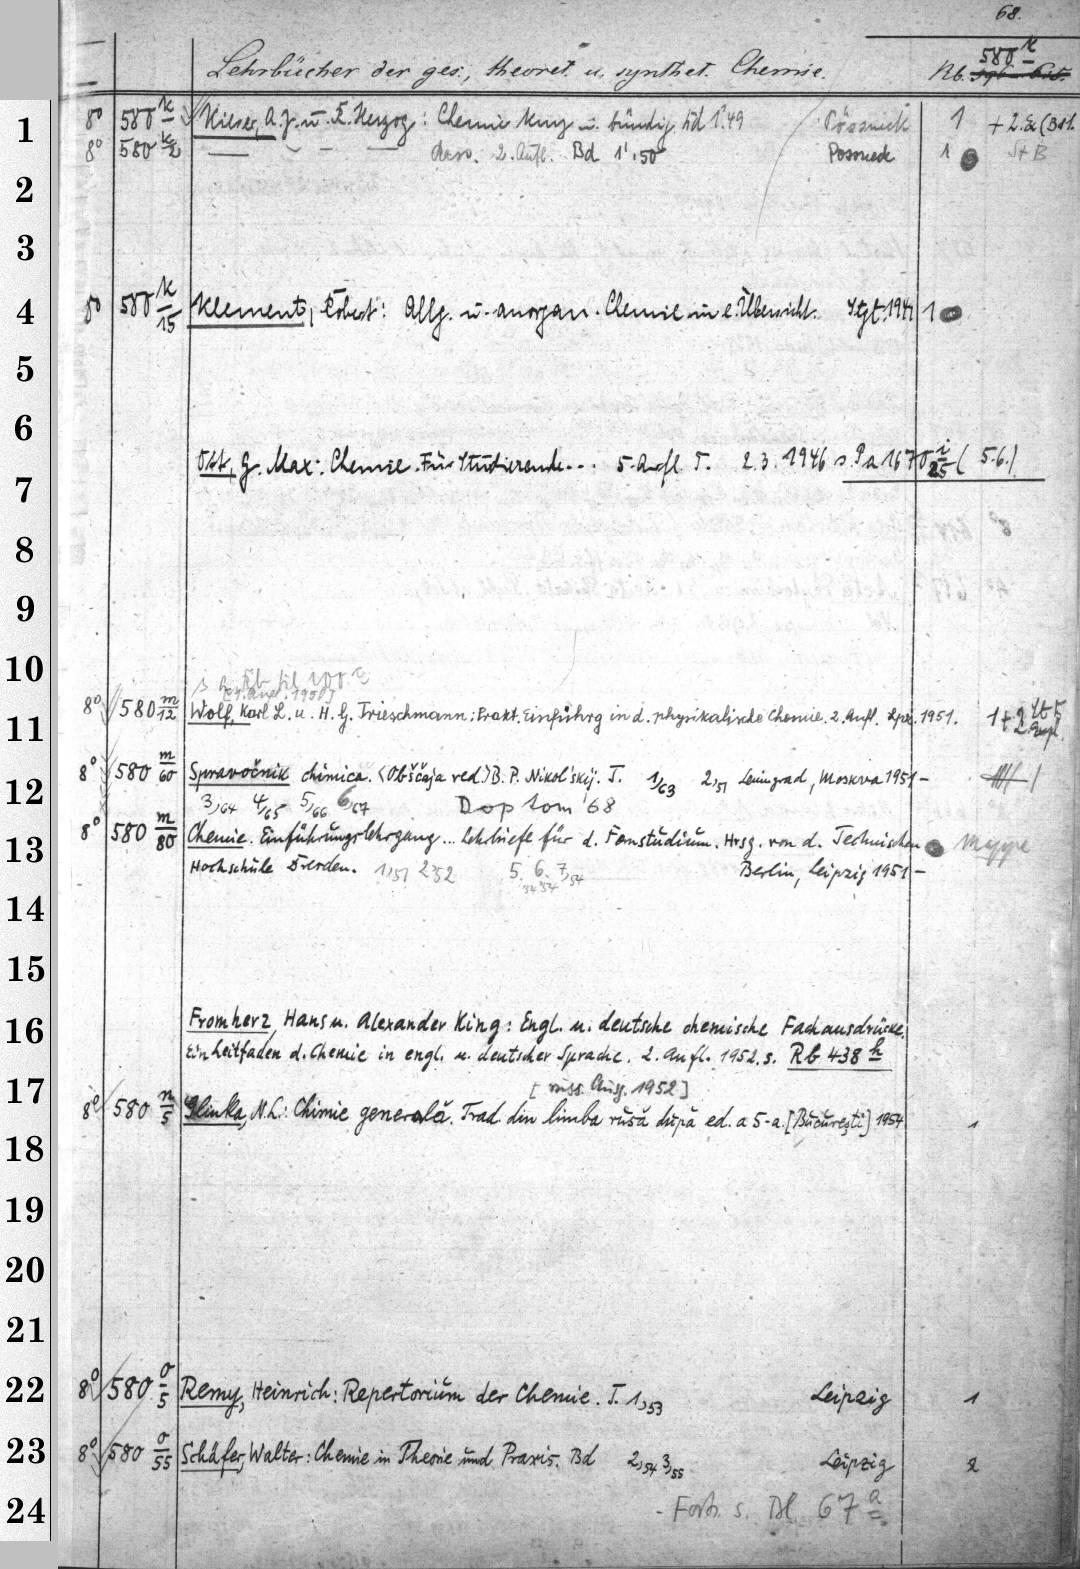 68.
Lehrbücher der ges., theoret. u. synthet. Chemie. Rb. 580 k
1 8° 580 k Kieser, A. J. u. E. Herzog: Chemie kurz u. bündig Bd 1'.49 Pössneck 1 + 2. Ex (Bst.
8° 580 k/2 — — — dass. 2. Aufl. Bd 1'.50 Possneck 1 St B
2
3
4 8° 580 k/15 Klement, Robert: Allg. u. anorgan. Chemie in e. Übersicht. Stgt. 1941 1
5
6
Ost, H. Max: Chemie. Für Studierende... 5. Aufl T. 2.3. 1946 s. Pa 1670 i/25 ( 5.6.)
7
8
9
10
8° 580 m/12 Wolf, Karl L. u. H. G. Trieschmann: Prakt. Einführg in d. physikalische Chemie. 2. Aufl. Lpz. 1951. 1+
11
8° 580 m/60 Spravočnik chimica. (Obščaja red.) B. P. Nikol'skij. T. 1,63 2,51 Leningrad, Moskva 1951-
12 3,64 4,65 5,66 6,67 Dop tom '68
8° 580 m/80 Chemie. Einführungslehrgang... Lehrbriefe für d. Fernstudium. Hrsg. von d. Technischen Mappe
13 Hochschule Dresden. 1,51 2 52 5. 6. 7,54 Berlin, Leipzig 1951-
14
15
16 Fromherz, Hans u. Alexander King: Engl. u. deutsche chemische Fachausdrücke.
Ein Leitfaden d. Chemie in engl. u. deutscher Sprache. 2. Aufl. 1952. s. Rb 438 h
17 [russ. Ausg. 1952]
8° 580 n/5 Glinka, N. L.: Chimie generală. Trad. din limba rusă după ed. a 5-a. [Bucureşti] 1954 1
18
19
20
21
22 8° 580 o/5 Remy, Heinrich: Repertorium der Chemie. T. 1,53 Leipzig 1
23 8° 580 o/55 Schäfer, Walter: Chemie in Theorie und Praxis. Bd 2,54 3,55 Leipzig 2
24 - Forts. s. Bl. 67 a